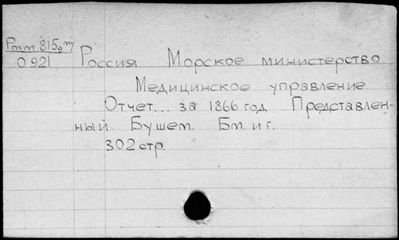 Россия Морское министерство
0921
Медицинское управление.
Отчет... за 1866 год. Представлен-
ный Бушем. Бм. и г.
302 стр.